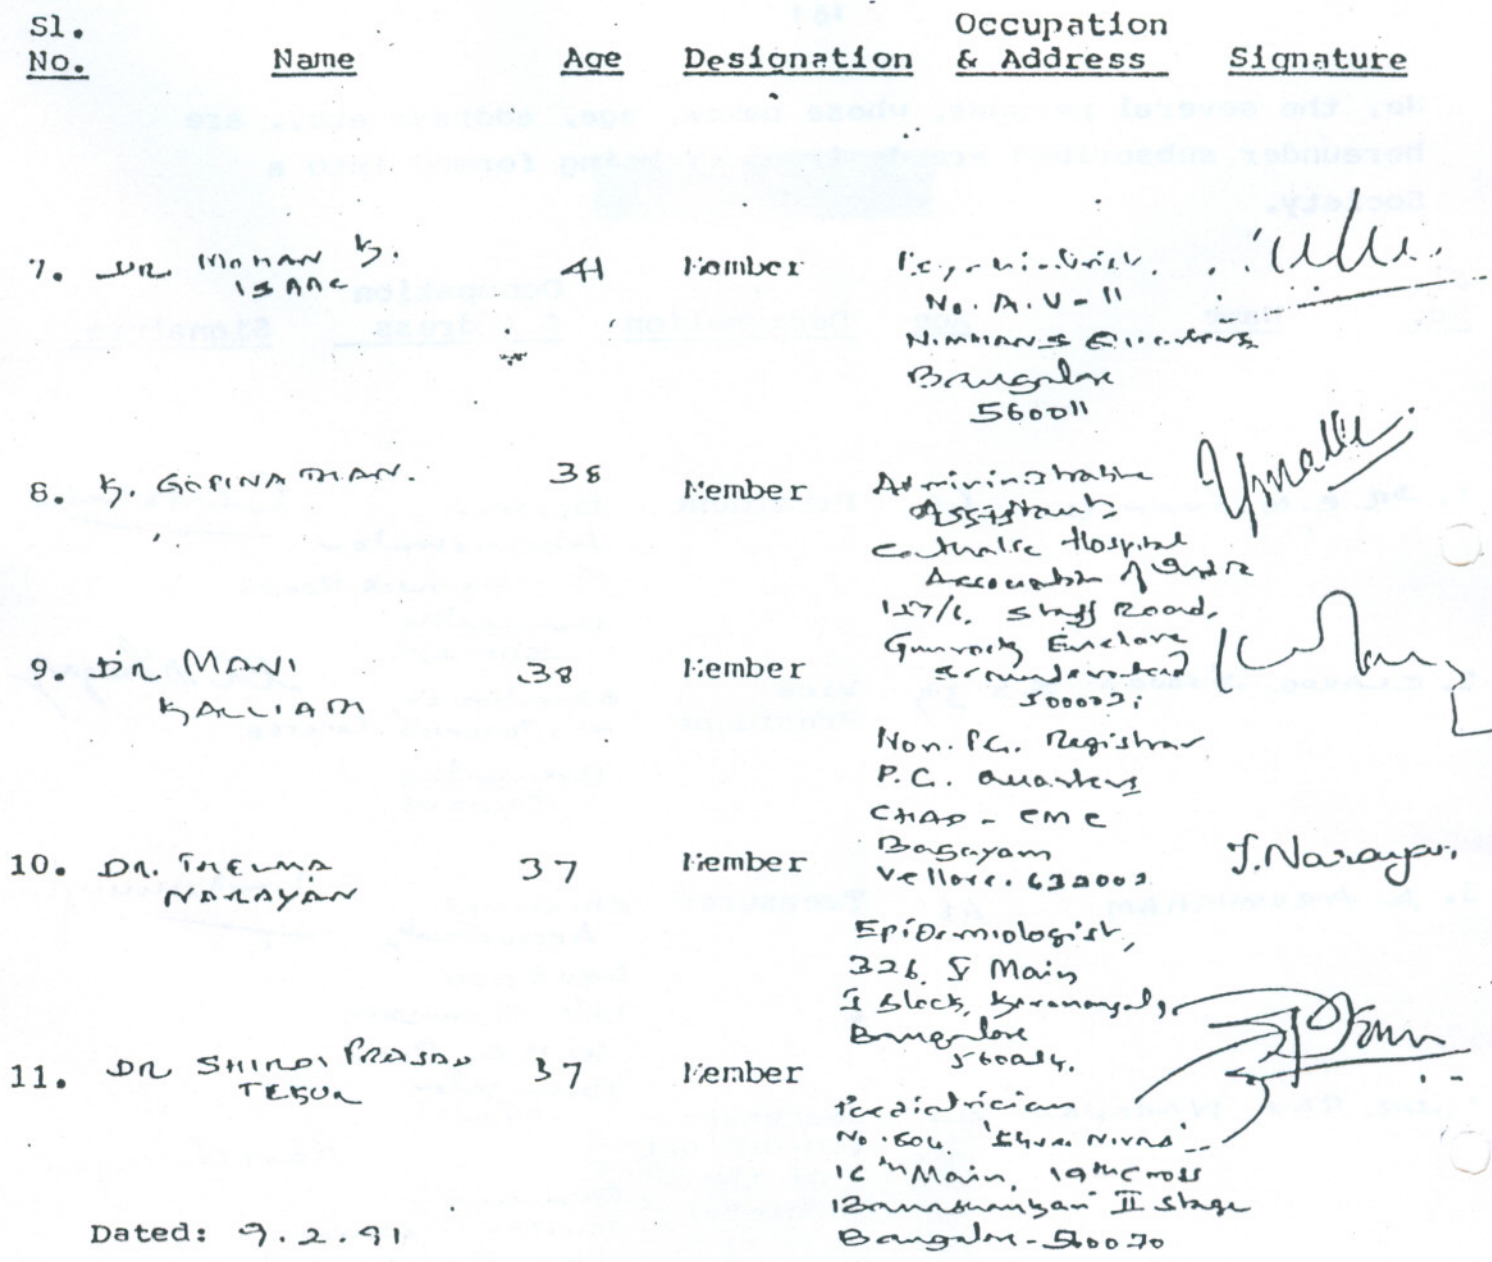 Sl. No. Name Age Designation Occupation & Address Signature
7. DR MOHAN K. ISAAC 41 Member Psychiatrist.
No. A.V-11
NIMHANS Quarters
Bangalore
560011
8. K. GOPINATHAN. 38 Member Administrative
Assistant
Catholic Hospital
Association of India
157/6, Staff Road,
Gunrock Enclave
Secunderabad
500009.
9. DR MANI KALLIATH 38 Member
Non. P.G. Registrar
P.G. Quarters
CHAD - CMC
Bagayam
Vellore. 632002
10. DR. THELMA NARAYAN 37 Member T. Narayan.
Epidemiologist,
326, V Main
I Block, Koramangala,
Bangalore
560034.
11. DR SHIRDI PRASAD TEKUR 37 Member
Paediatrician
No. 604,
16th Main, 19th Cross
Banashankari II Stage
Bangalore - 560070
Dated: 9.2.91